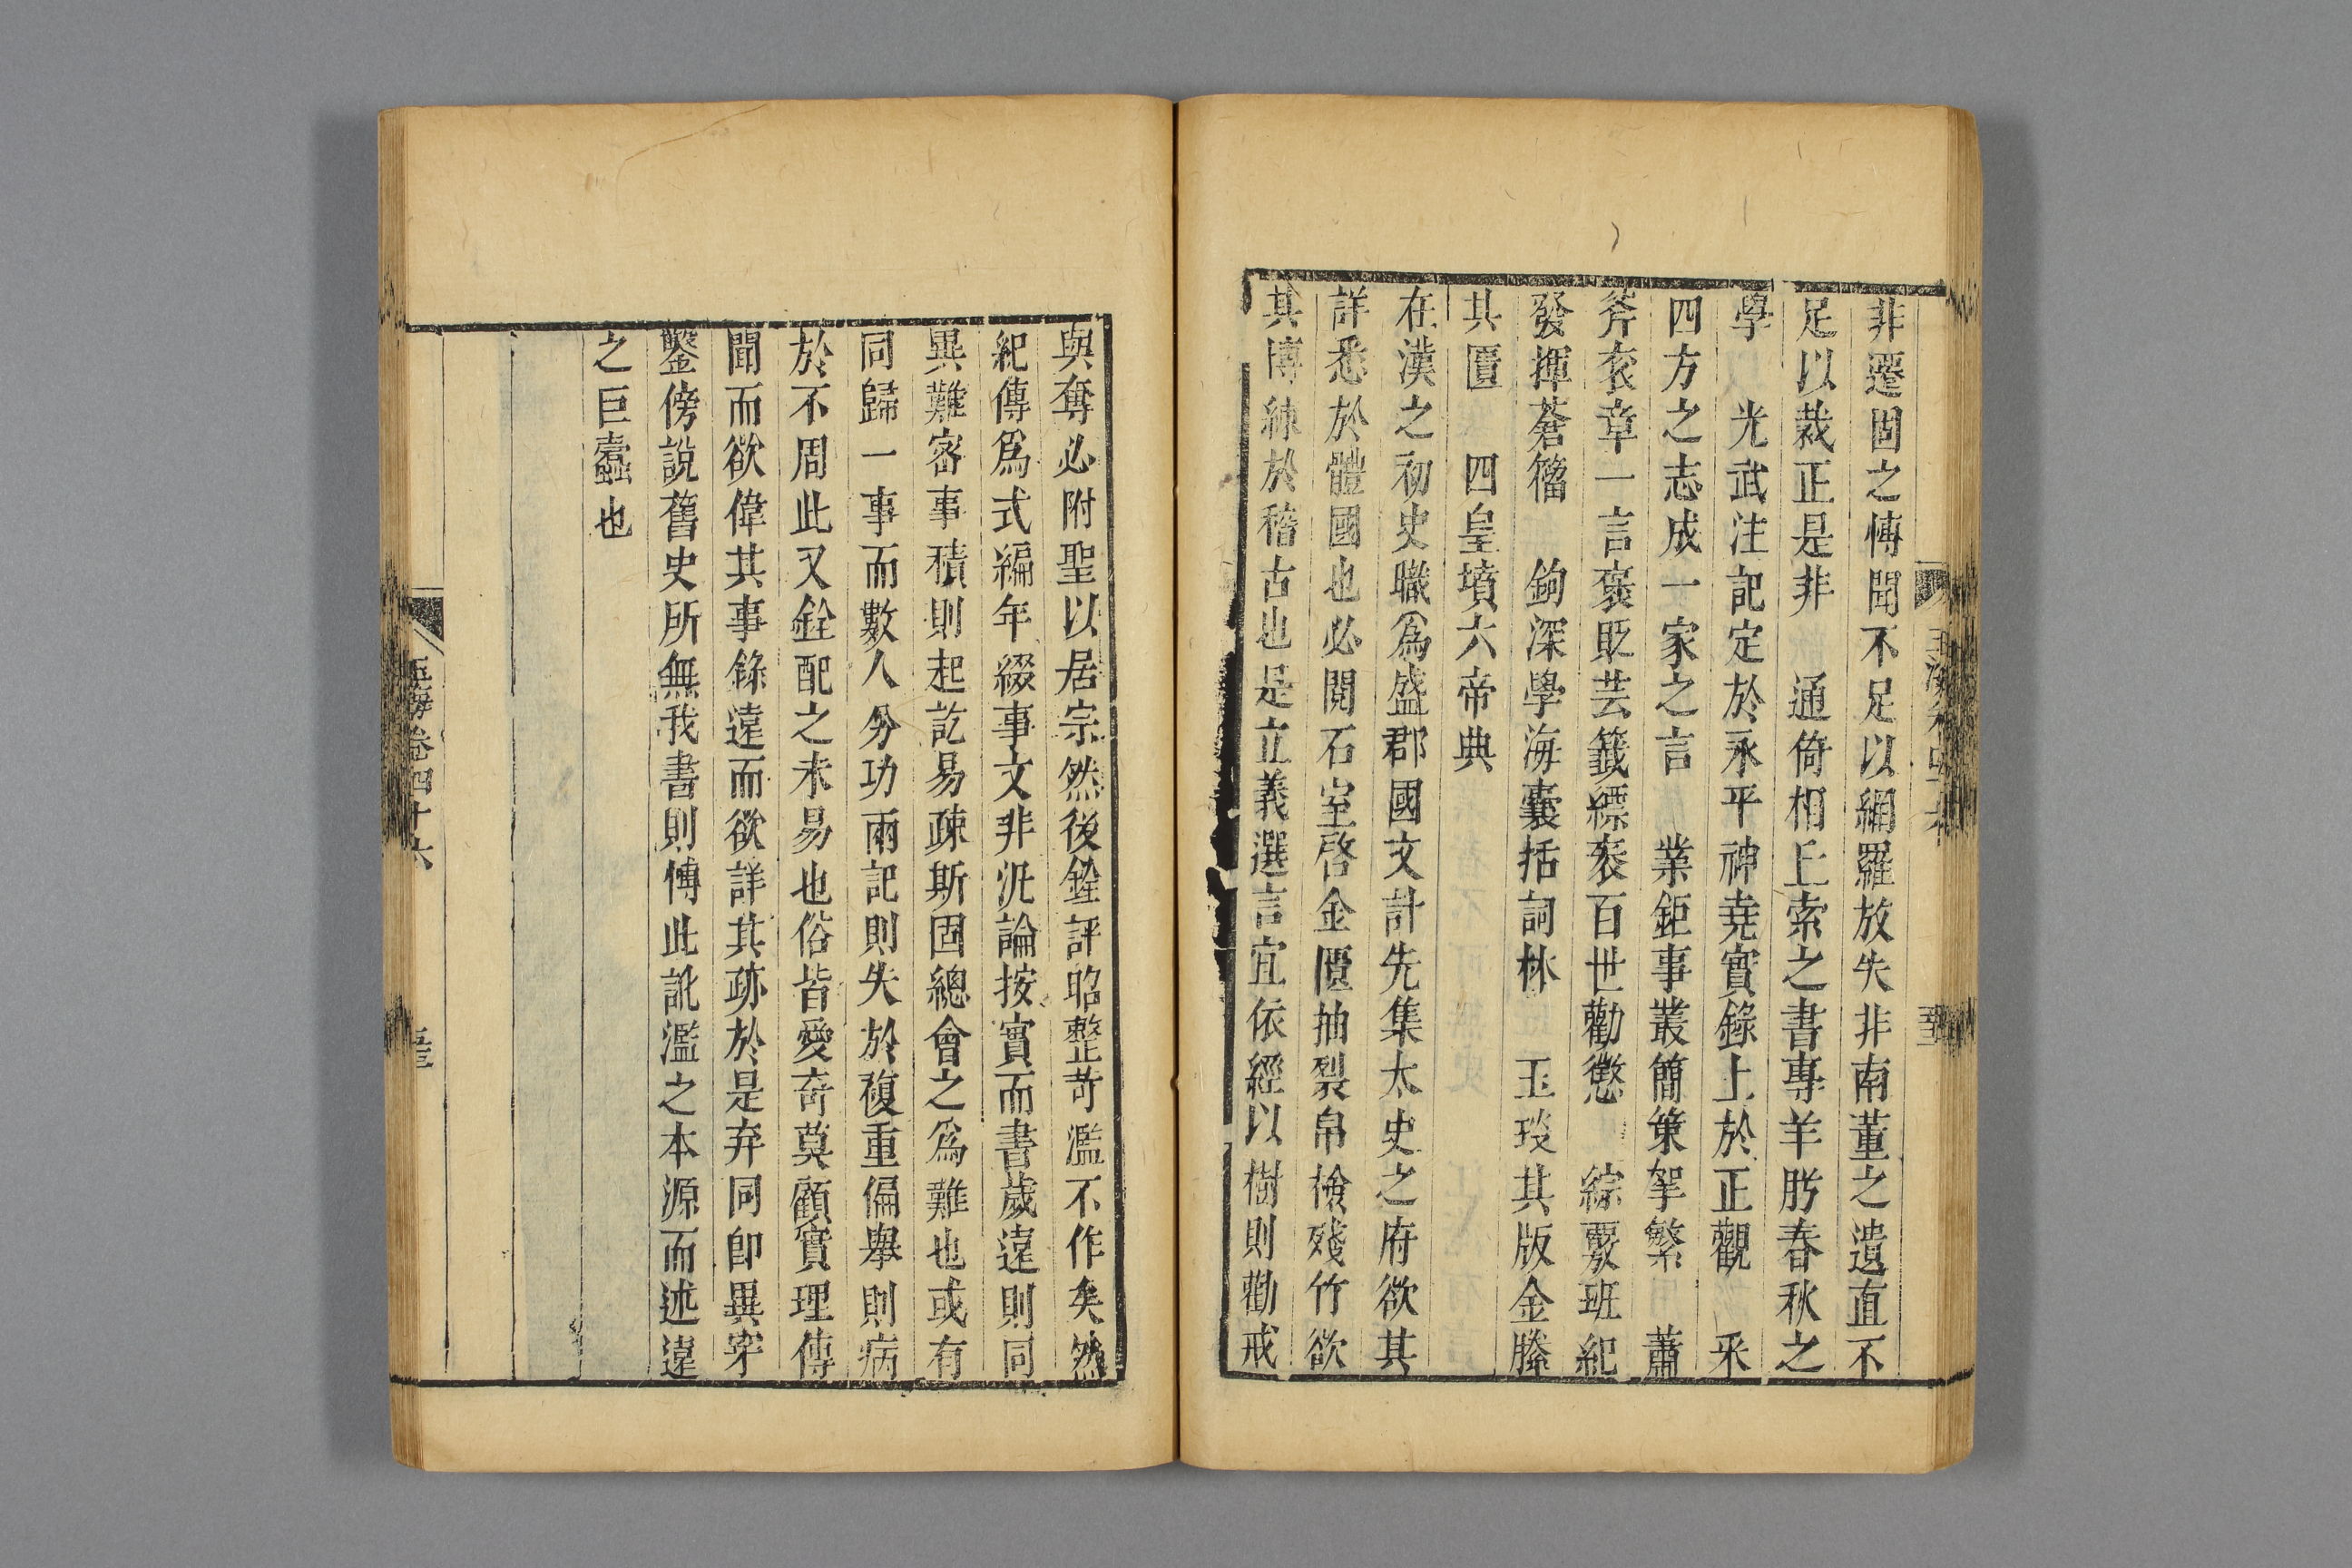 非遷固之愽聞不足以網羅放失非南董之遺直不
足以裁正是非　通倚相丘索之書專羊肹春秋之
學　光武注記定於永平神堯實錄上於正觀　釆
四方之志成一家之言　業鉅事叢簡策挐繁　蕭
斧衮章一言褒貶芸籖縹袠百世勸懲　綜覈班紀
發揮蒼籀　鉤深學海囊括詞林　玉琰其版金縢
其匱　四皇墳六帝典
在漢之初史職爲盛郡國文計先集太史之府欲其
詳悉於體國也必閱石室啓金匱抽裂帛檢殘竹欲
其博練於稽古也是立義選言宜依經以樹則勸戒
與奪必附聖以居宗然後銓評昭整苛濫不作矣然
紀傳爲式編年綴事文非汎論按實而書歲遠則同
異難密事積則起訖易疎斯固總會之爲難也或有
同歸一事而數人分功兩記則失於複重偏舉則病
於不周此又銓配之未易也俗皆愛奇莫顧實理傳
聞而欲偉其事錄遠而欲詳其跡於是弃同卽異穿
鑿傍說舊史所無我書則愽此訛濫之本源而述遠
之巨蠹也
玉海卷四十六